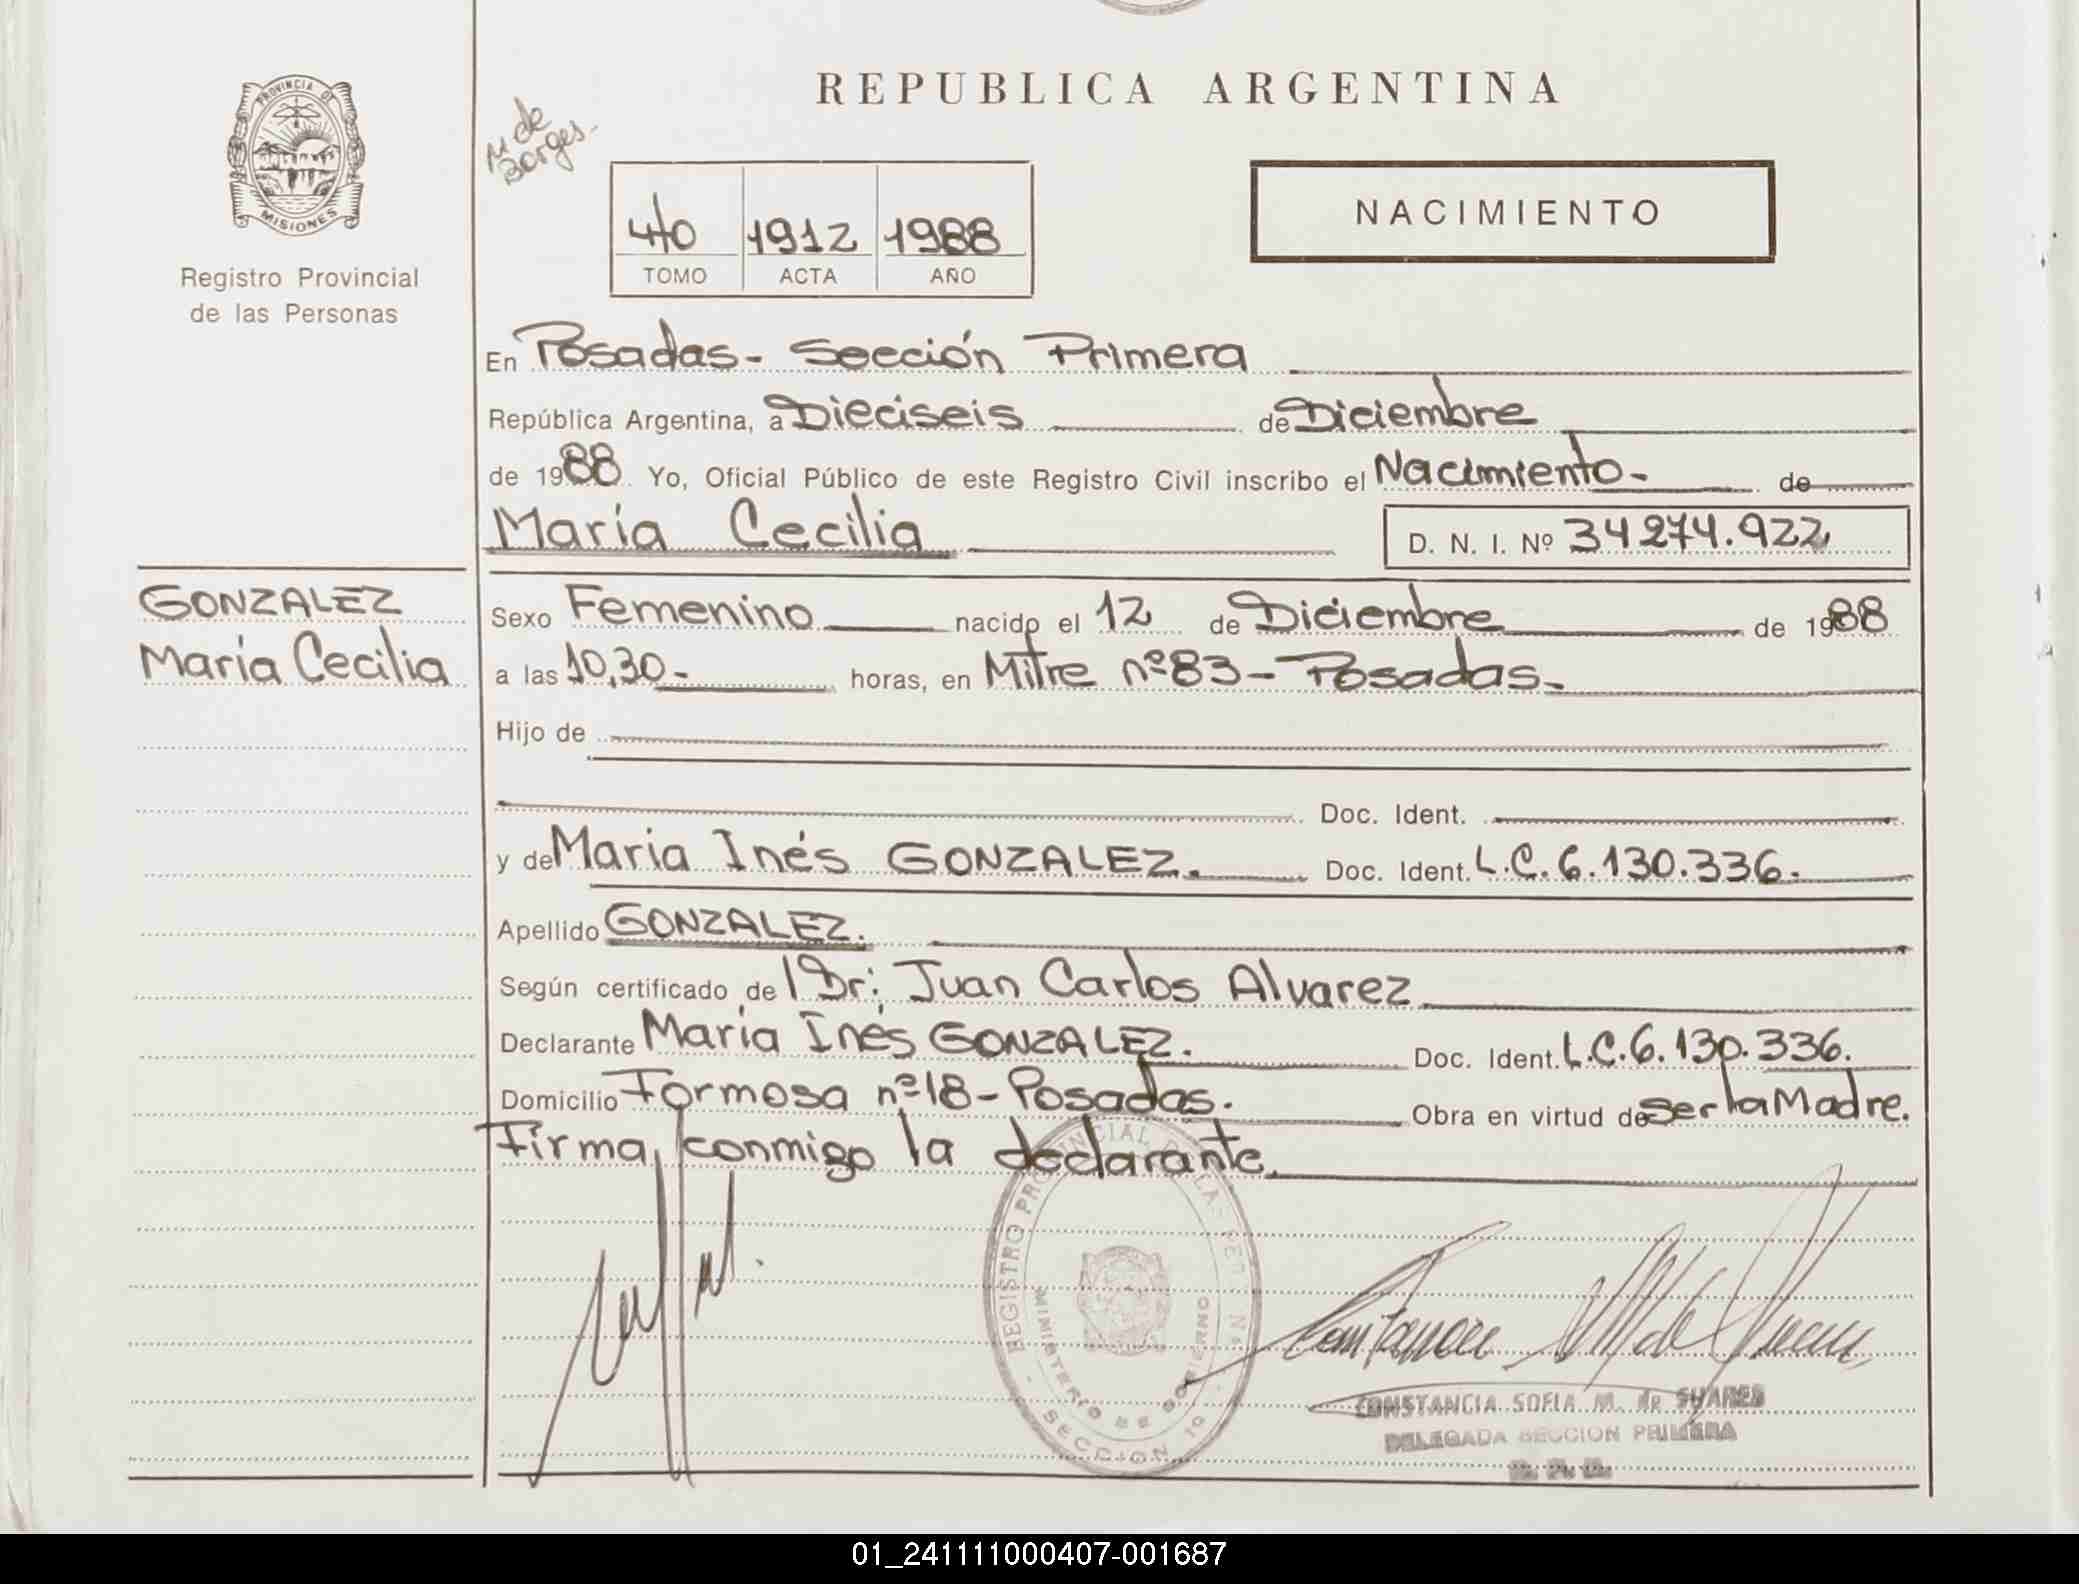 PROVINCIA DE
MISIONES
Registro Provincial
de las Personas
REPUBLICA ARGENTINA
M de
Borges.
4/0 1912 1988
TOMO ACTA AÑO
NACIMIENTO
En Posadas- Sección Primera
República Argentina, a Dieciseis de Diciembre
de 1988 Yo, Oficial Público de este Registro Civil inscribo el Nacimiento- de
María Cecilia D. N. I. Nº 34274.922
GONZALEZ
María Cecilia
Sexo Femenino nacido el 12 de Diciembre de 1988
a las 10,30- horas, en Mitre nº83- Posadas-
Hijo de
Doc. Ident.
y de Maria Inés GONZALEZ. Doc. Ident. L.C.6.130.336.
Apellido GONZALEZ.
Según certificado de l Dr: Juan Carlos Alvarez
Declarante María Inés GONZALEZ. Doc. Ident. L.C.6.130.336.
Domicilio Formosa nº18- Posadas. Obra en virtud de ser la Madre.
Firma conmigo la declarante.
REGISTRO PROVINCIAL DE LAS PERSONAS
MINISTERIO DE GOBIERNO
- SECCION 1º -
CONSTANCIA SOFIA M. de SUARES
DELEGADA SECCION PRIMERA
01_241111000407-001687